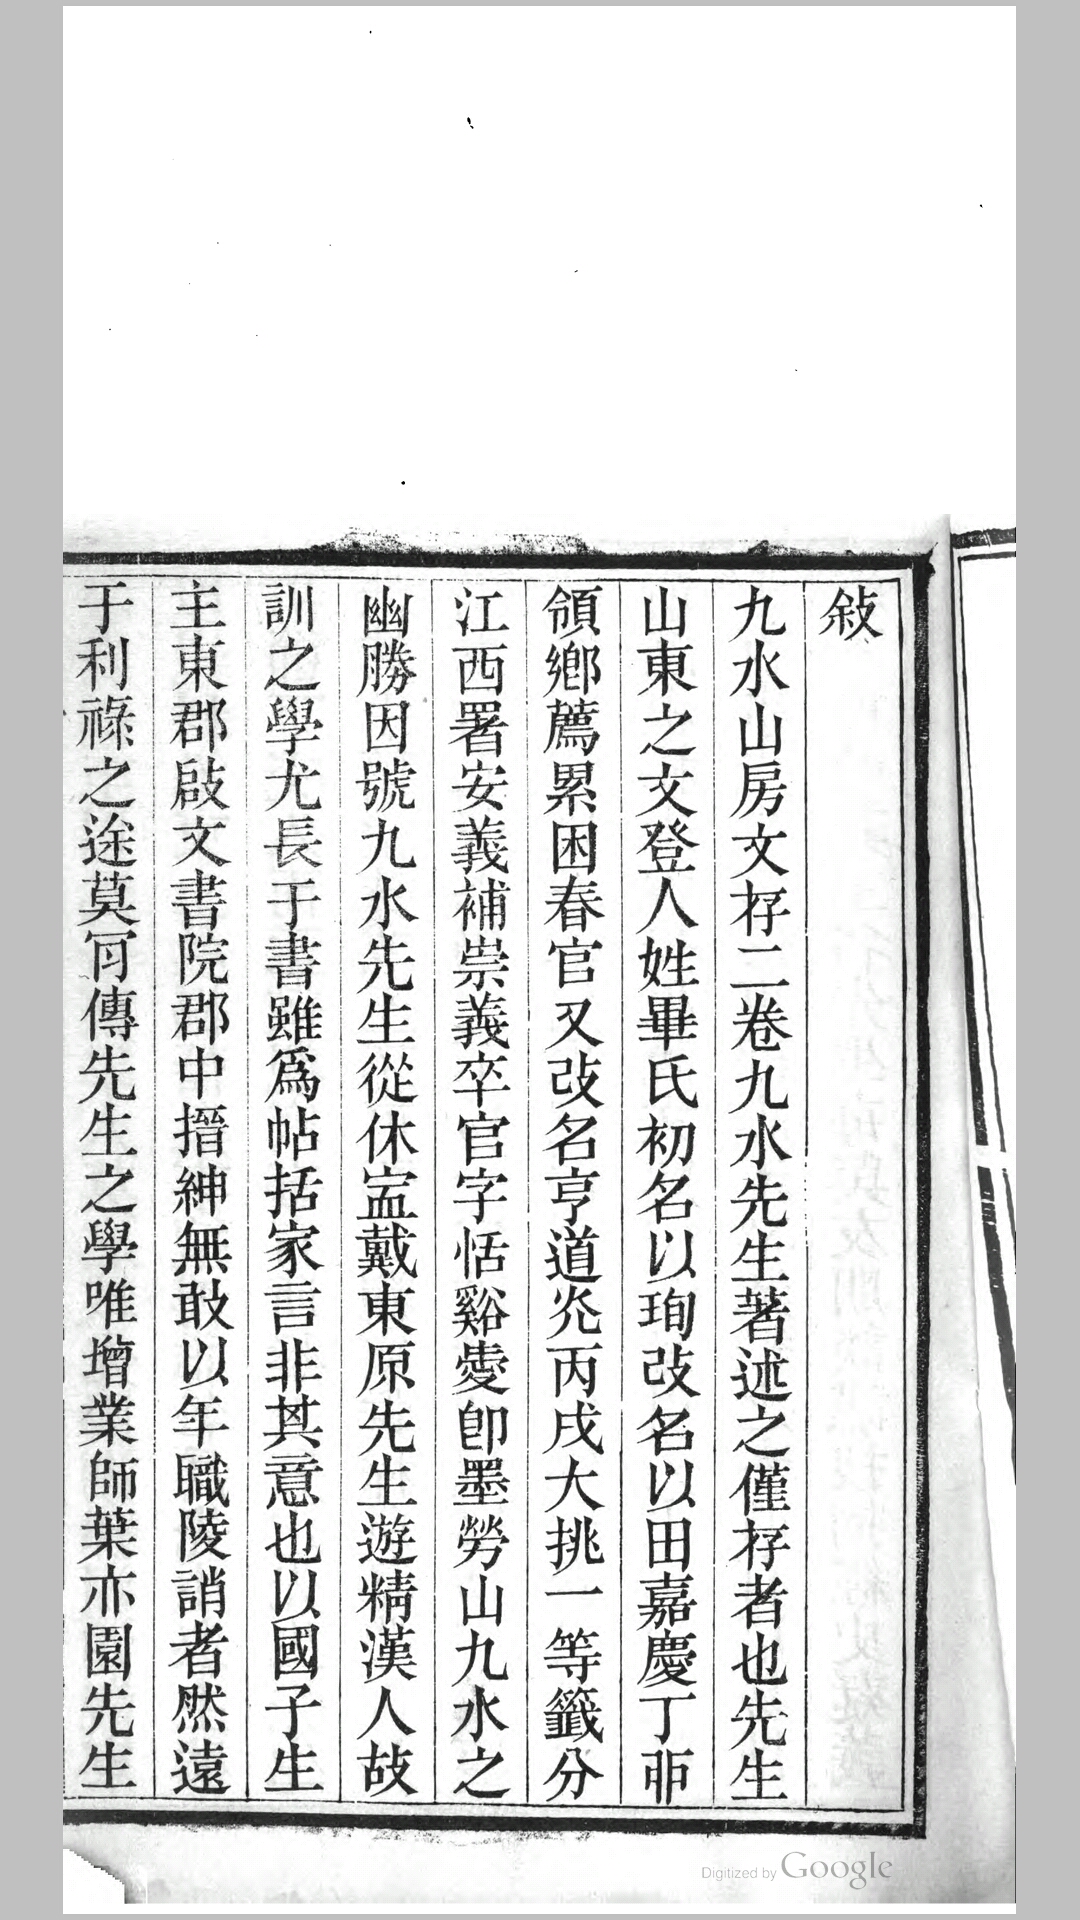 敍
九水山房文存二卷九水先生著述之僅存者也先生
山東之文登人姓畢氏初名以珣改名以田嘉慶丁丣
領鄉薦累困春官又改名亨道光丙戌大挑一等籤分
江西署安義補崇義卒官字恬谿愛即墨勞山九水之
幽勝因號九水先生從休寍戴東原先生遊精漢人故
訓之學尤長于書雖爲帖括家言非其意也以國子生
主東郡啟文書院郡中搢紳無敢以年職陵誚者然遠
于利祿之途莫肎傳先生之學唯增業師葉亦園先生
Digitized by Google